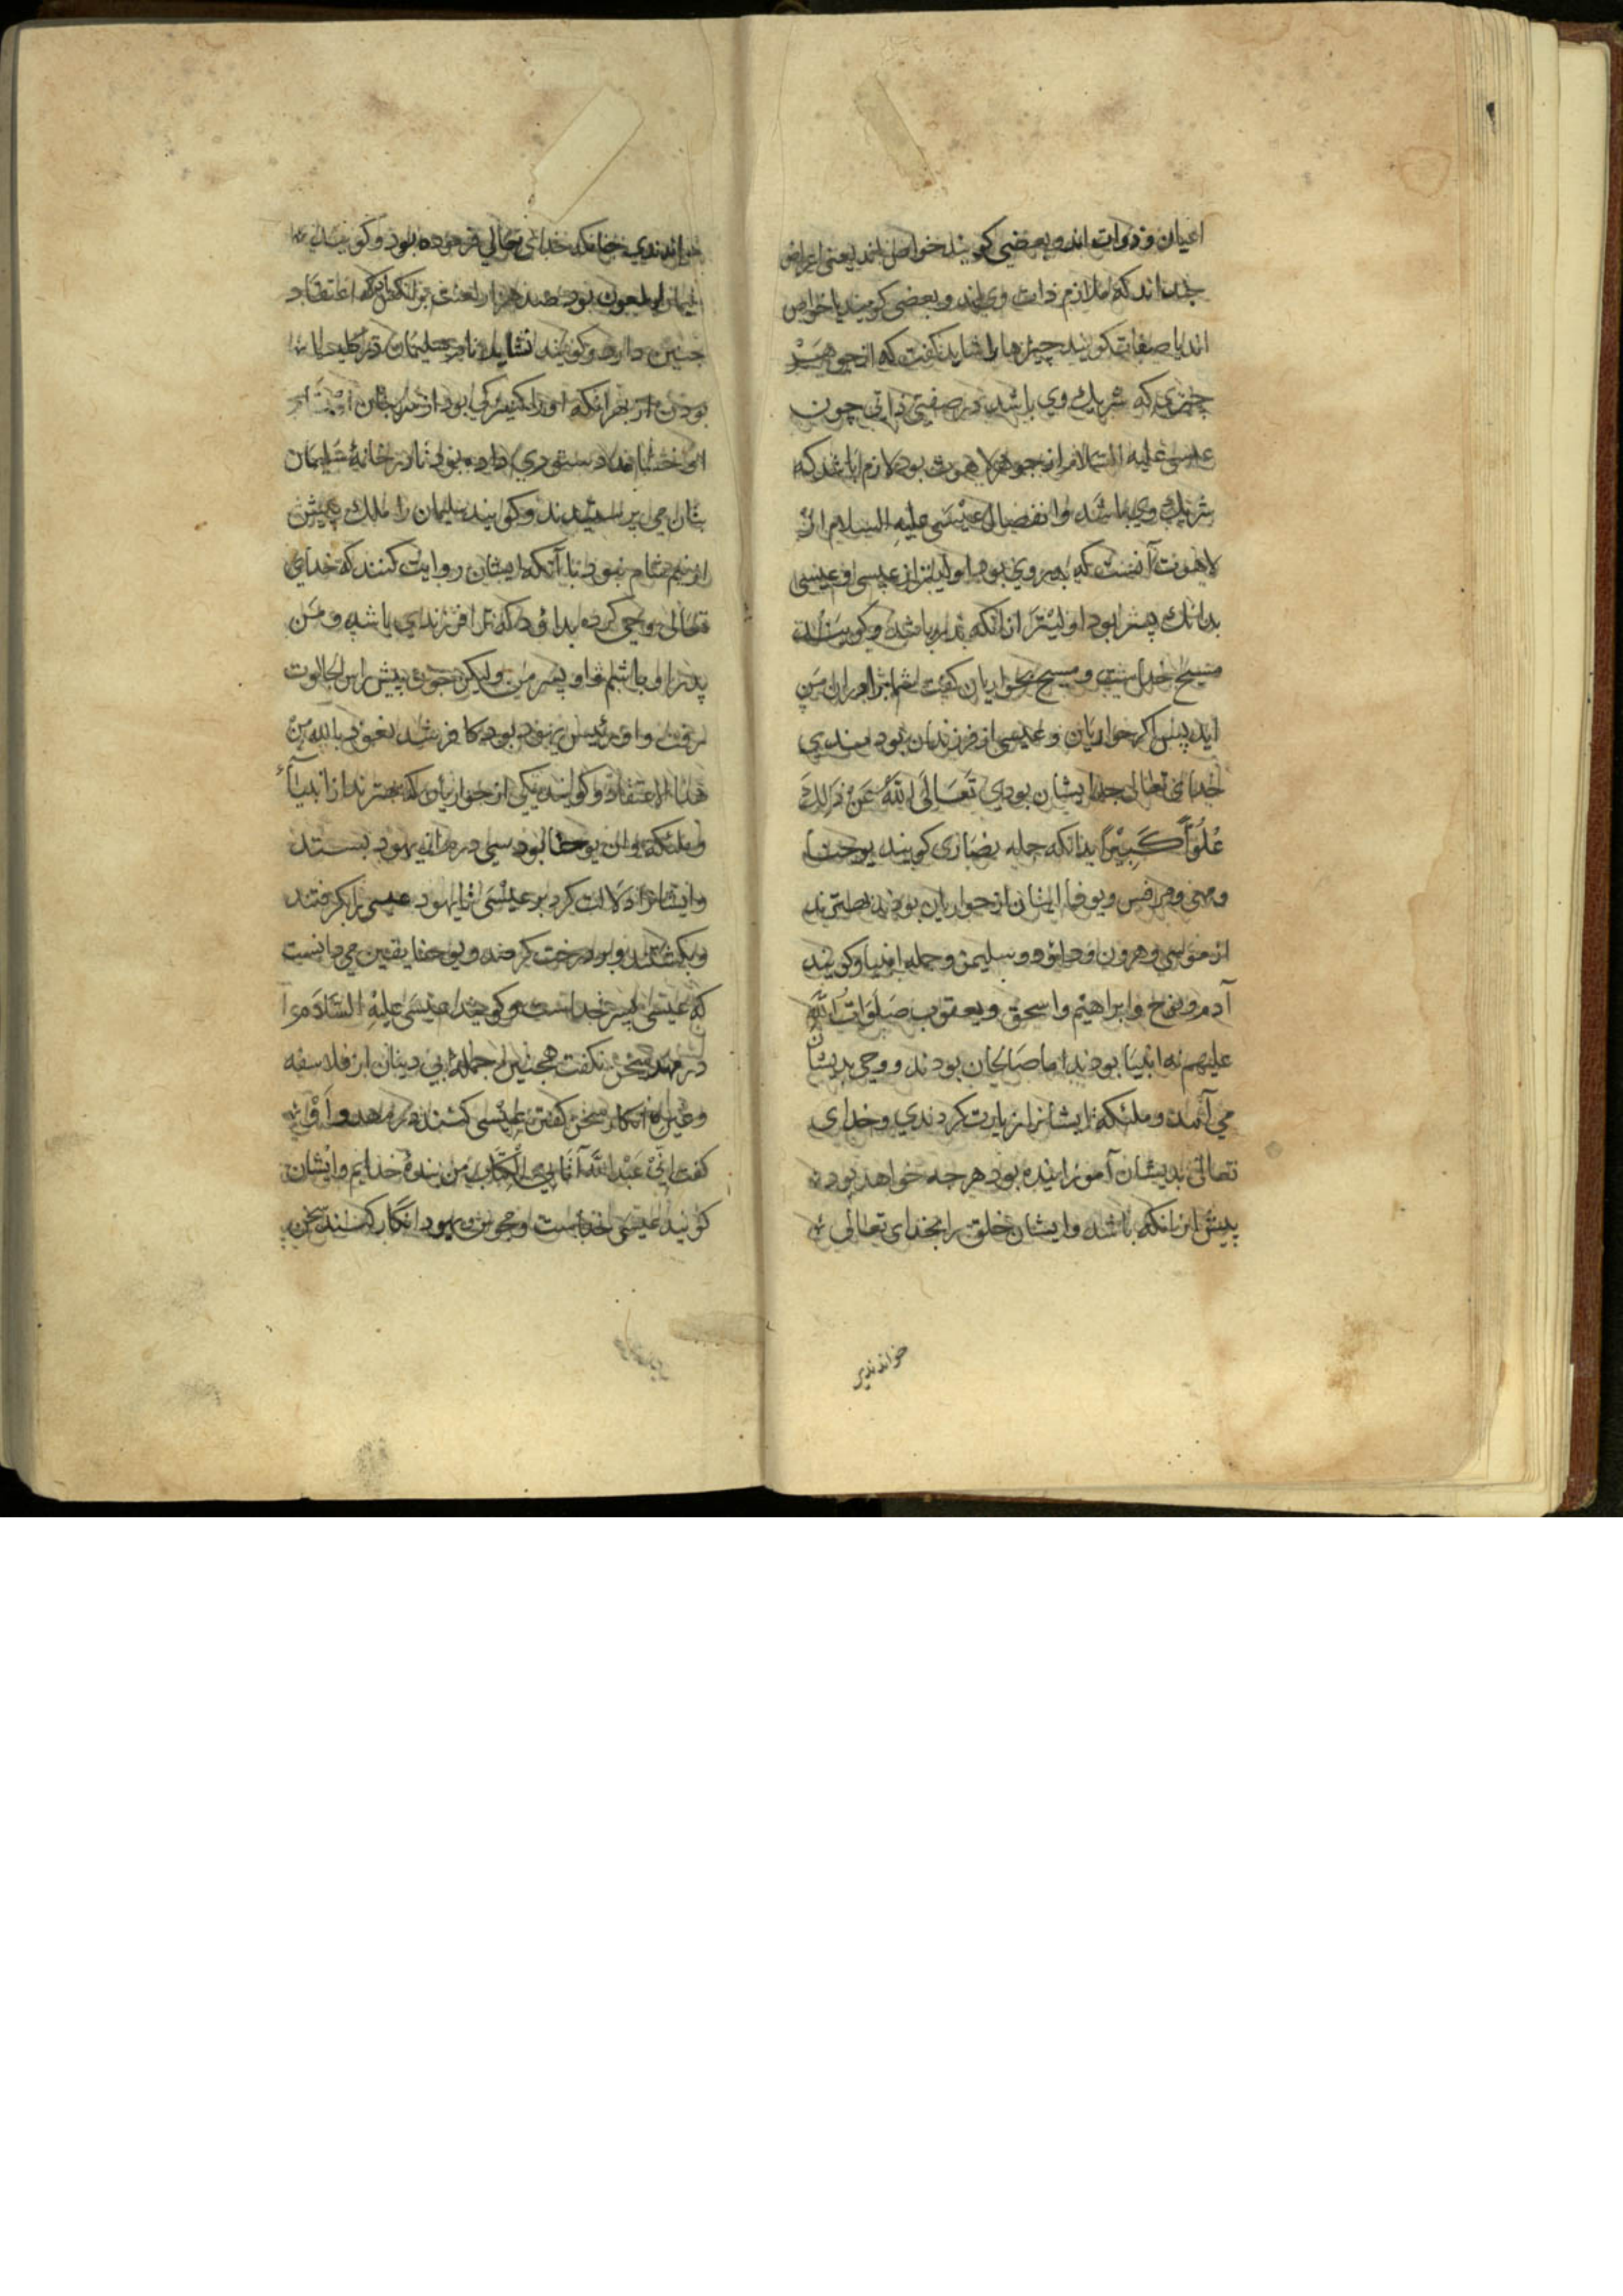 اعیان و ذوات اند و بعضی کویند خواص اند یعنی اعراض
جند اند که ملازم ذات وی اند و بعضی کویند یا خواص
اند یا صفات کویند چیزها را شاید کفت که از جوهر
چیزی که شریك وی باشد در صفتی ذاتی چون
عیسی علیه السلام از جوهر لاهوت بود لازم باشد که
شریك وی باشد و انفصال عیسی علیه السلام از
لاهوت آنست که بدر وی بود اولیتر از عیسی و عیسی
بدانك پسر بود اولیتر از انکه بدر باشد و کویند
مسیح خداست و مسیح بحواریان کفت شما برادران من
اید پس اکر حواریان و عیسی از فرزندان بودندی
خدای تعالی جد ایشان بودی تَعَالَی اللهُ عَنْ ذَلِكَ
عُلُوّاً كَبِیْراً بدانکه جمله نصاری کویند یوحنا
و متی و مرقس و لوقا ایشان از حواریان بودند بهترند
از موسی و هرون و داود و سلیمن و جمله انبیا و کویند
آدم و نوح و ابراهیم و اسحق و یعقوب صَلَوَاتُ اللّه
علیهم نه انبیا بودند اما صالحان بودند و وحی بدیشان
می آمد و ملئکه ایشانرا زیارت کردندی و خدای
تعالی بدیشان آموزانیده بود هرجه خواهد بود
پیش از انکه باشد و ایشان خلق را بخدای تعالی
خواندندی
خواندندی جنانکه خدای تعالی فرموده بود و کویند
سلیمان ملعون بود صد هزار لعنت بر انکس باد که اعتقاد
جنین دارد و کویند نشاید نام سلیمان در کلیسیا
بودن از بهر انکه او را کنیزکی بود
او را دستوری داده بود تا در خانۀ سلیمان
بتان می پرستیدند و کویند سلیمان را ملك بیش
از نیم شام نبود با آنکه ایشان روایت کنند که خدای
تعالی وحی کرد بداود که ترا فرزندی باشد و من
پدر او باشم و او پسر من ولیکن چون پیش راس جالوت
رفت و او رئیس یهود بود کافر شد نعوذ بالله من
هذا الاعتقاد و کویند یکی از حواریان که بهترند از انبیآء
و ملئکه و ان یوحنا بود سی درم از یهود بستد
و ایشانرا دلالت کرد بر عیسی تا یهود عیسی را بکرفتند
و بکشتند و بر درخت کردند و یوحنا یقین می دانست
که عیسی پسر خداست و کویند عیسی علیه السلام
در مهد سخن نکفت همچنین از جمله بی دینان از فلاسفه
و غیره انکار سخن کفتن عیسی کنند در مهد و او
کفت اِنّیْ عَبْدُ اللّهِ آتَانِیَ الْکِتَاب من بندۀ خدایم و ایشان
کویند عیسی خداست و مجوس و یهود انکار کنند سخن